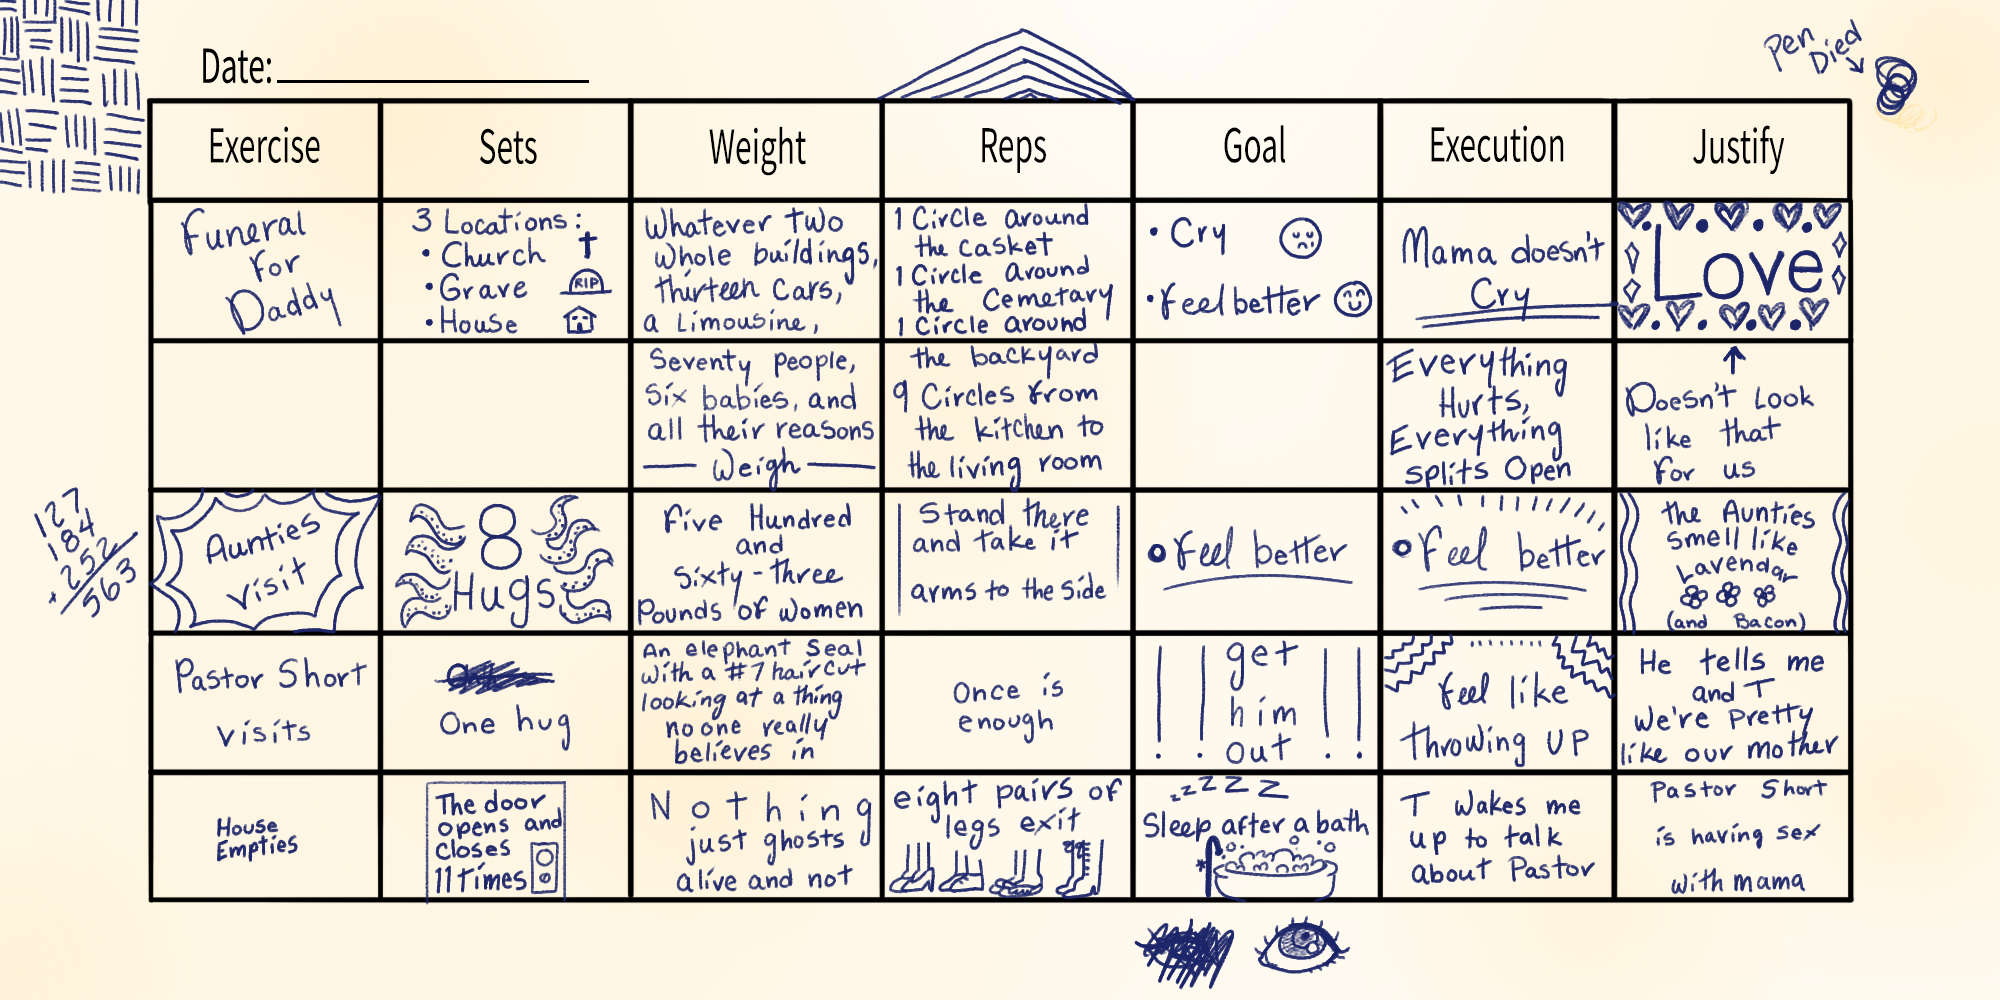 Pen
Died
Date:
Exercise
Sets
Weight
Reps
Goal
Execution
Justify
Funeral
for
Daddy
3 Locations:
• Church
• Grave
RIP
• House
Whatever two
whole buildings,
thirteen cars,
a limousine,
1 Circle around
the casket
1 Circle around
the Cemetary
1 Circle around
• Cry
• Feel better
Mama doesn't
Cry
Love
Seventy people,
Six babies, and
all their reasons
Weigh
the backyard
9 Circles from
the kitchen to
the living room
Everything
Hurts,
Everything
splits Open
Doesn't Look
like that
for us
127
184
+252
563
Aunties
visit
8
Hugs
Five Hundred
and
Sixty-three
Pounds of women
Stand there
and take it
arms to the side
• Feel better
• Feel better
the Aunties
smell like
Lavendar
(and Bacon)
Pastor Short
visits
One hug
An elephant Seal
with a #7 haircut
looking at a thing
no one really
believes in
Once is
enough
! ! get ! !
him
out
feel like
throwing UP
He tells me
and T
We're pretty
like our mother
House
Empties
The door
opens and
closes
11 times
Nothing
just ghosts
alive and not
eight pairs of
legs exit
zzzzz
Sleep after a bath
T wakes me
up to talk
about Pastor
Pastor Short
is having sex
with mama